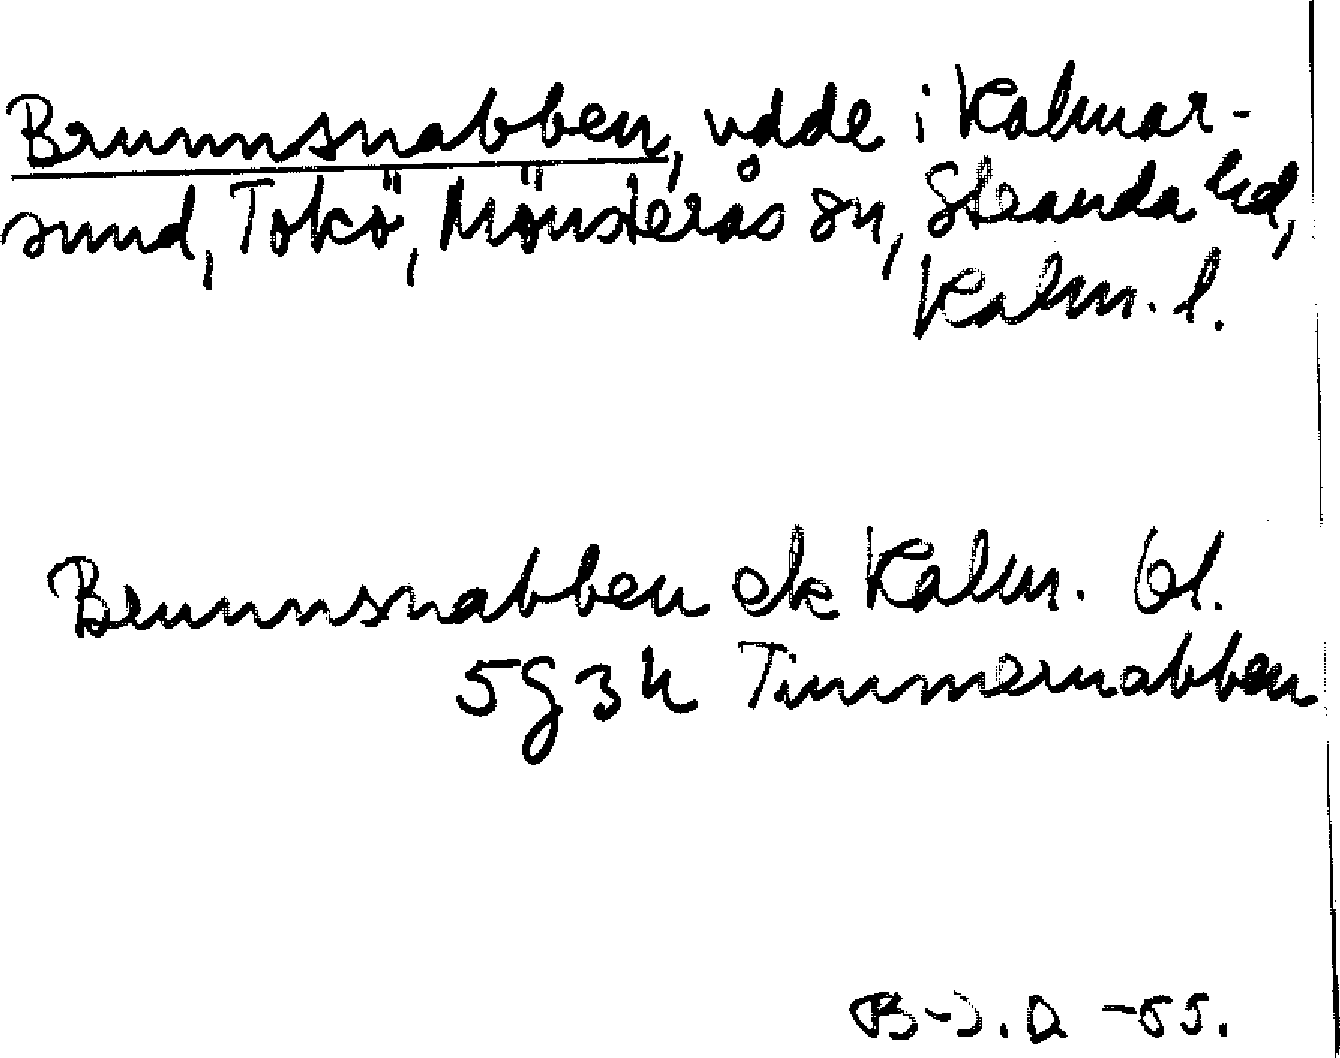 Brunnsnabben, udde i Kalmar-
sund, Tokö, Mönsterås sn, Stranda hd,
Kalm. l.
Brunnsnabben ek Kalm. bl.
5g3h Timmernabben
B-J.D -55.